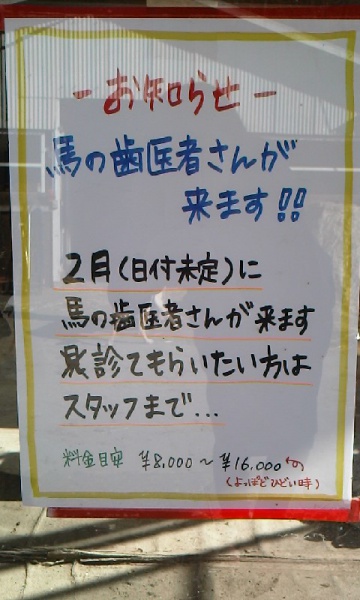 -お知らせ-
馬の歯医者さんが
来ます!!
2月(日付未定)に
馬の歯医者さんが来ます
診てもらいたい方は
スタッフまで...
料金目安 ¥8,000～¥16,000
(よっぽどひどい時)